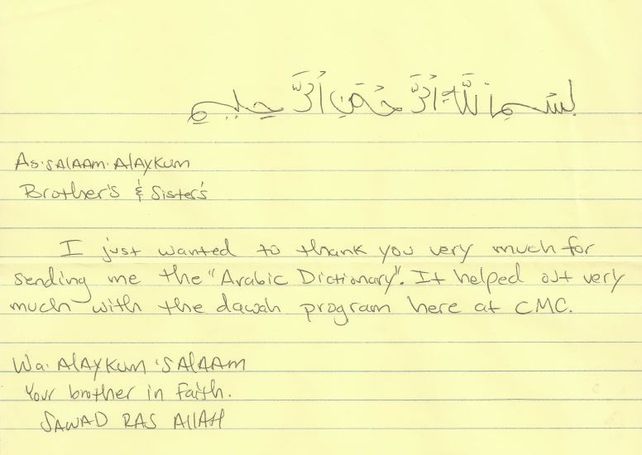 بسم الله الرحمن الرحيم
As·SALAAM·ALAYKUM
Brother's & Sister's
I just wanted to thank you very much for
sending me the "Arabic Dictionary". It helped out very
much with the dawah program here at CMC.
Wa·ALAYKUM·SALAAM
Your brother in faith.
SAWAD RAS ALLAH